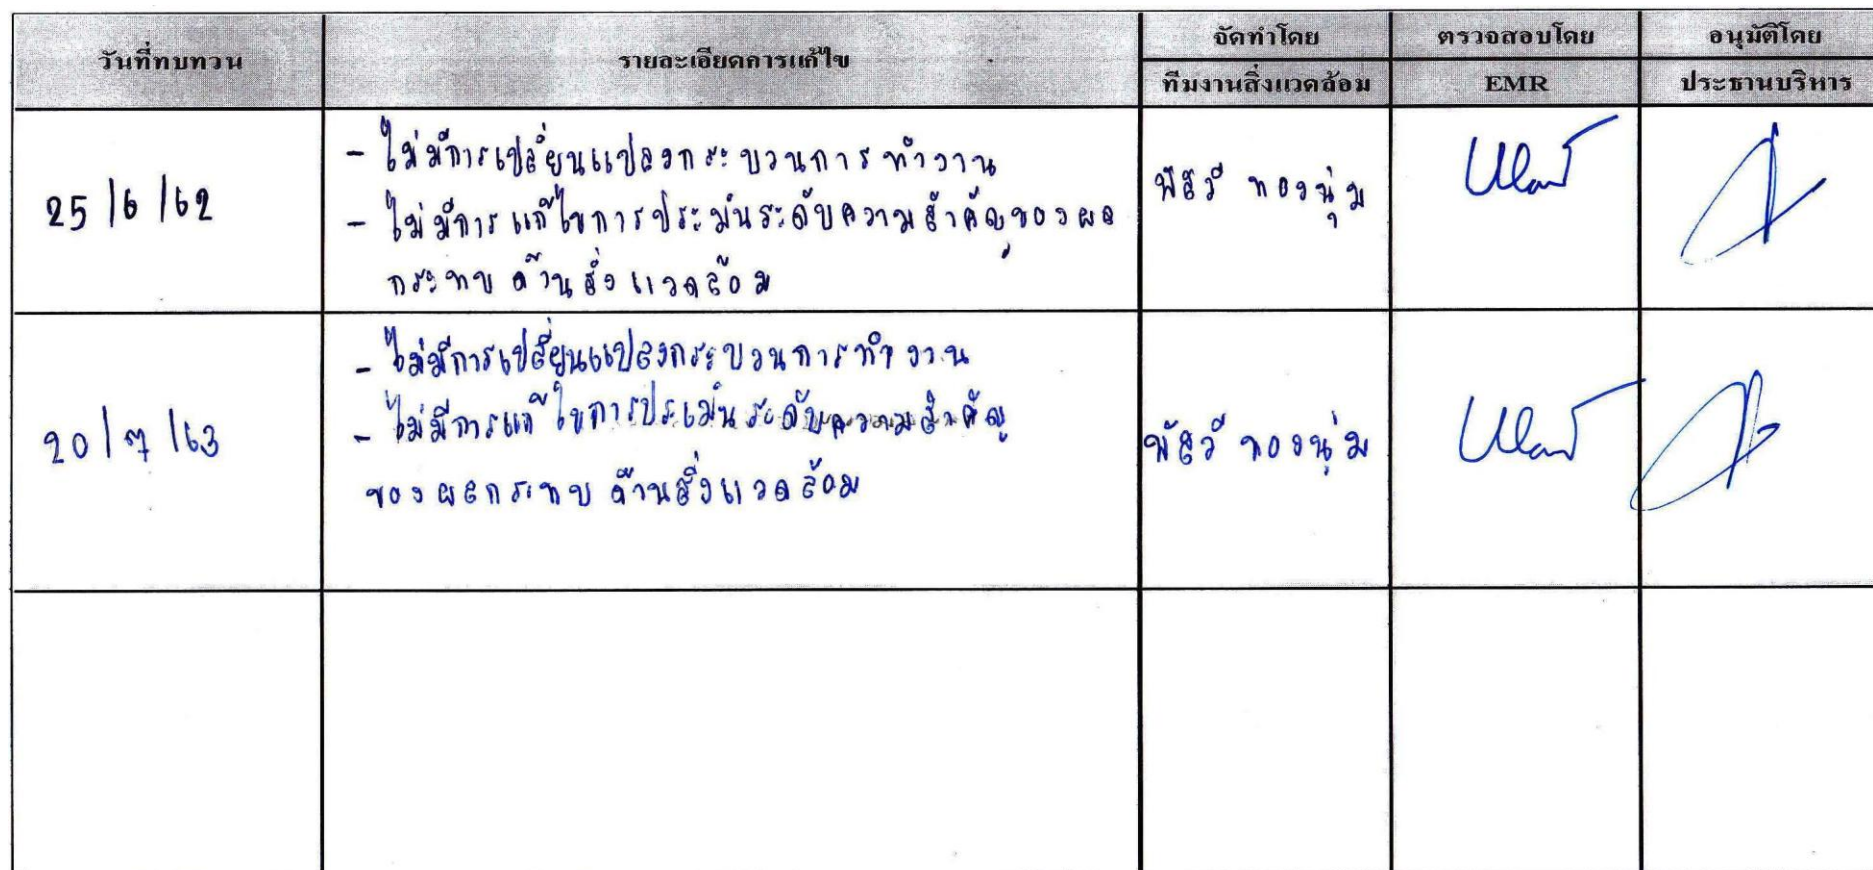 วันที่ทบทวน รายละเอียดการแก้ไข จัดทำโดย ตรวจสอบโดย อนุมัติโดย
ทีมงานสิ่งแวดล้อม EMR ประธานบริหาร
25/6/62
- ไม่มีการเปลี่ยนแปลงกระบวนการทำงาน
- ไม่มีการแก้ไขการประมินระดับความสำคัญของผล
กระทบด้านสิ่งแวดล้อม
ทองนุ่ม
20/7/63
- ไม่มีการเปลี่ยนแปลงกระบวนการทำงาน
- ไม่มีการแก้ไขการประเมินระดับความสำคัญ
ของผลกระทบด้านสิ่งแวดล้อม
ทองนุ่ม